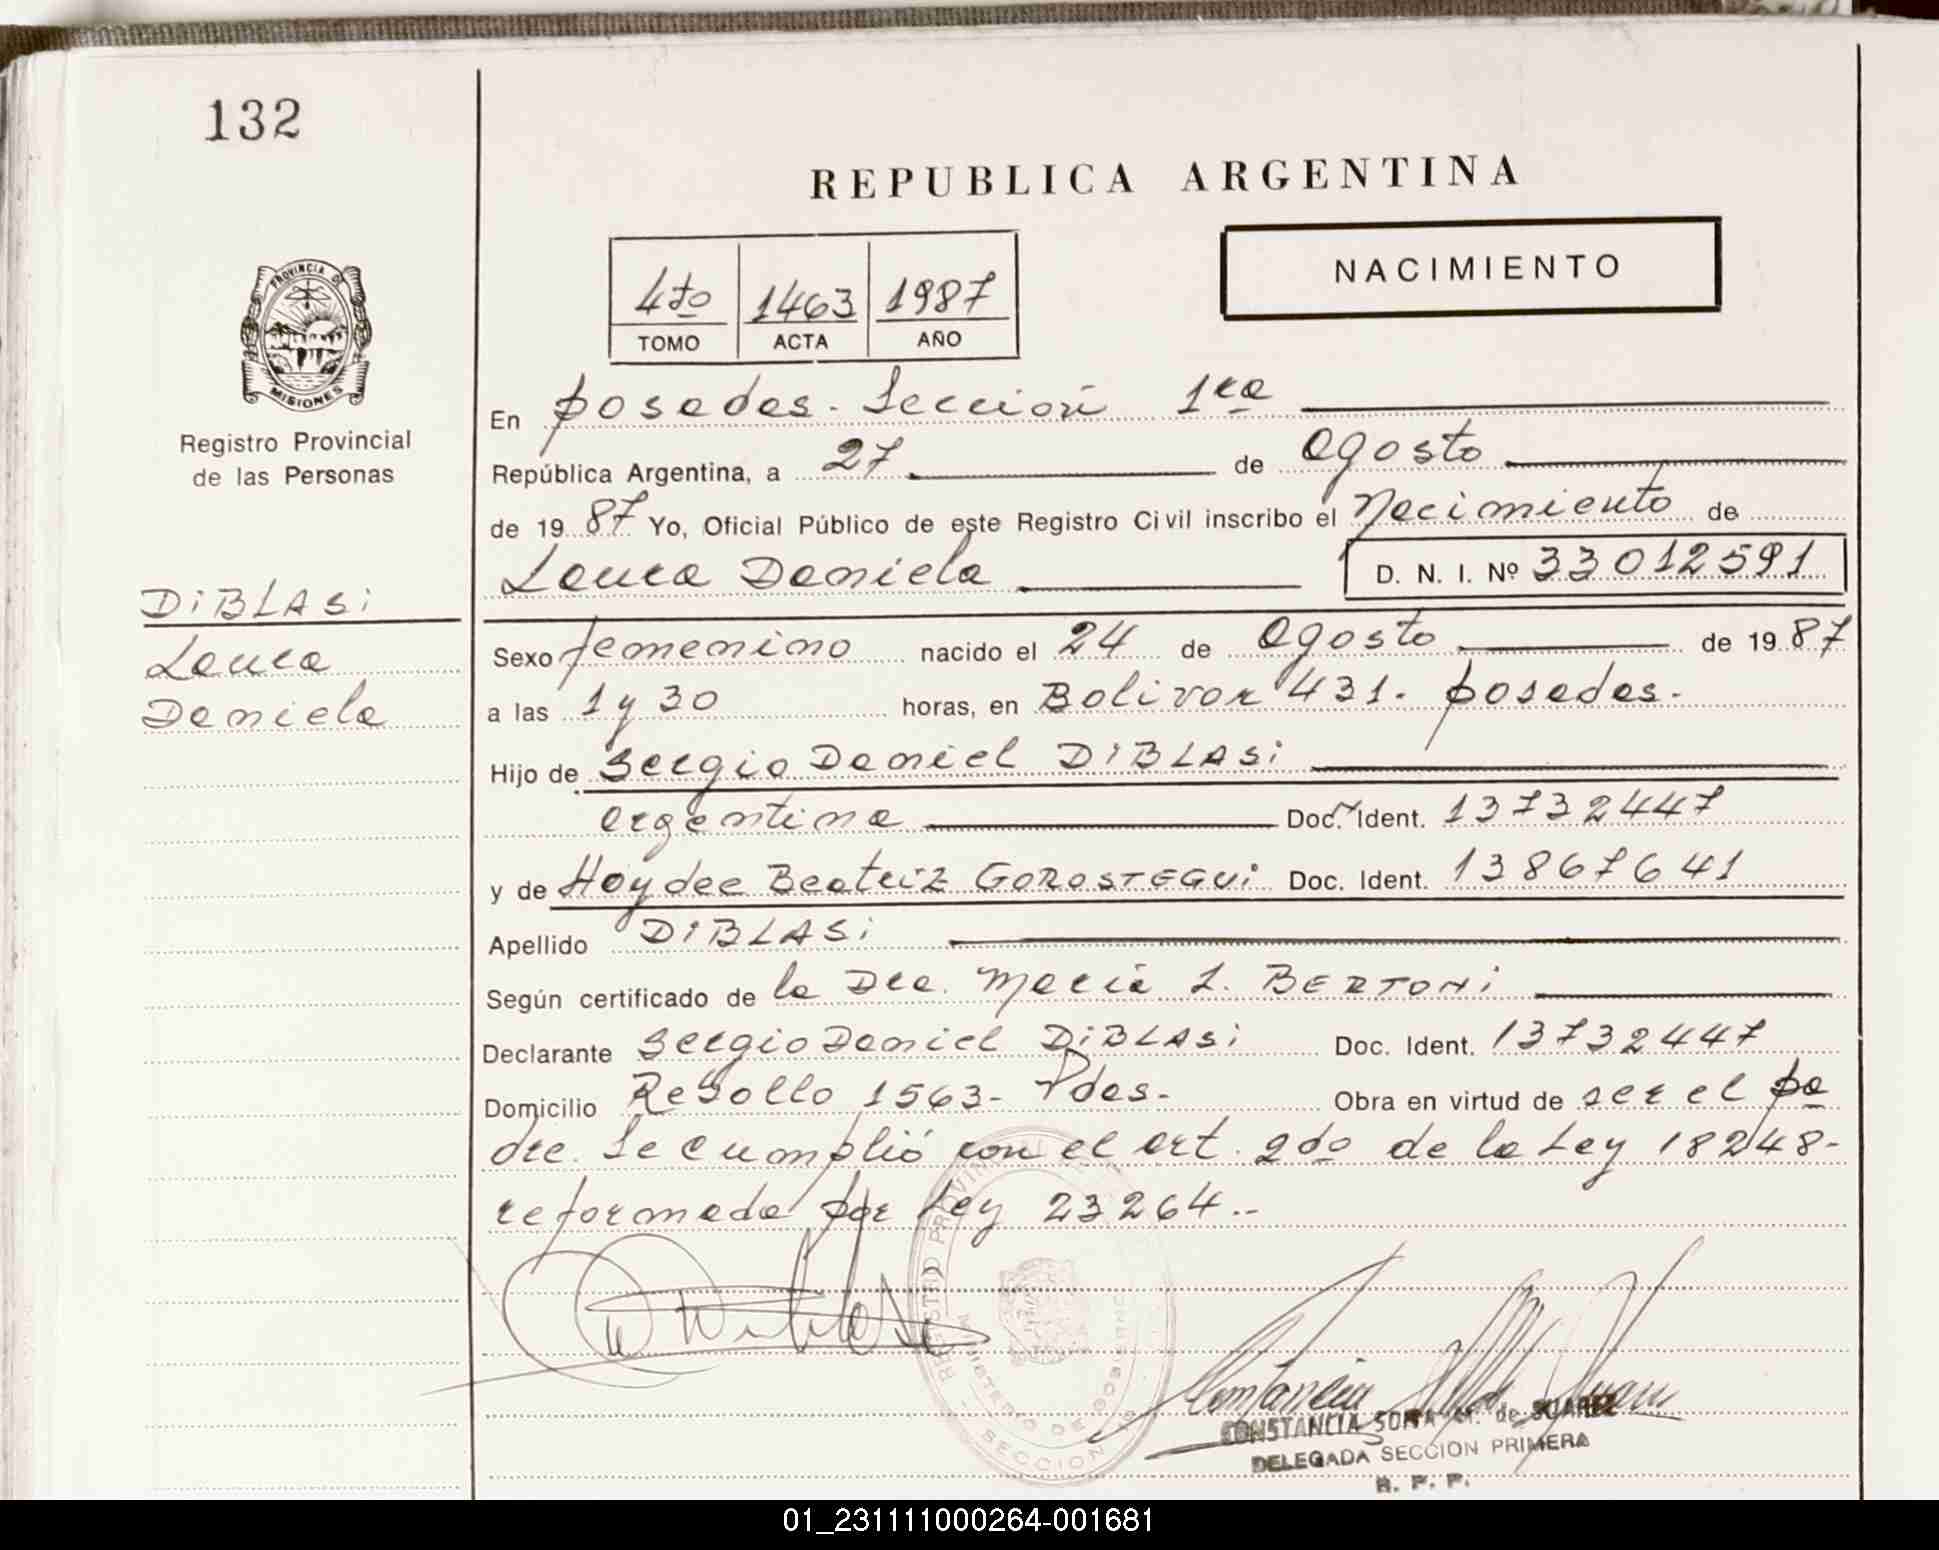 132
REPUBLICA ARGENTINA
4to 1463 1987
TOMO ACTA AÑO
NACIMIENTO
PROVINCIA DE MISIONES
Registro Provincial
de las Personas
En posadas. Sección 1ra
República Argentina, a 27 de agosto
de 1987 Yo, Oficial Público de este Registro Civil inscribo el Nacimiento de
Laura Daniela D. N. I. Nº 33012591
DiBLASi
Laura
Daniela
Sexo femenino nacido el 24 de agosto de 1987
a las 1 y 30 horas, en Bolivar 431. posadas.
Hijo de Sergio Daniel DiBLASi
argentina Doc. Ident. 13732447
y de Haydee Beatriz GOROSTEGUi Doc. Ident. 13867641
Apellido DiBLASi
Según certificado de la Dra. Maria L. BERTONi
Declarante Sergio Daniel DiBLASi Doc. Ident. 13732447
Domicilio 1563- Pdas. Obra en virtud de ser el pa
dre. Se cumplió con el art. 2do de la Ley 18248-
reformada por Ley 23264..
REGISTRO PROVINCIAL
MINISTERIO DE GOBIERNO
SECCION
CONSTANCIA SOFIA M. de SUAREZ
DELEGADA SECCION PRIMERA
R. P. P.
01_231111000264-001681